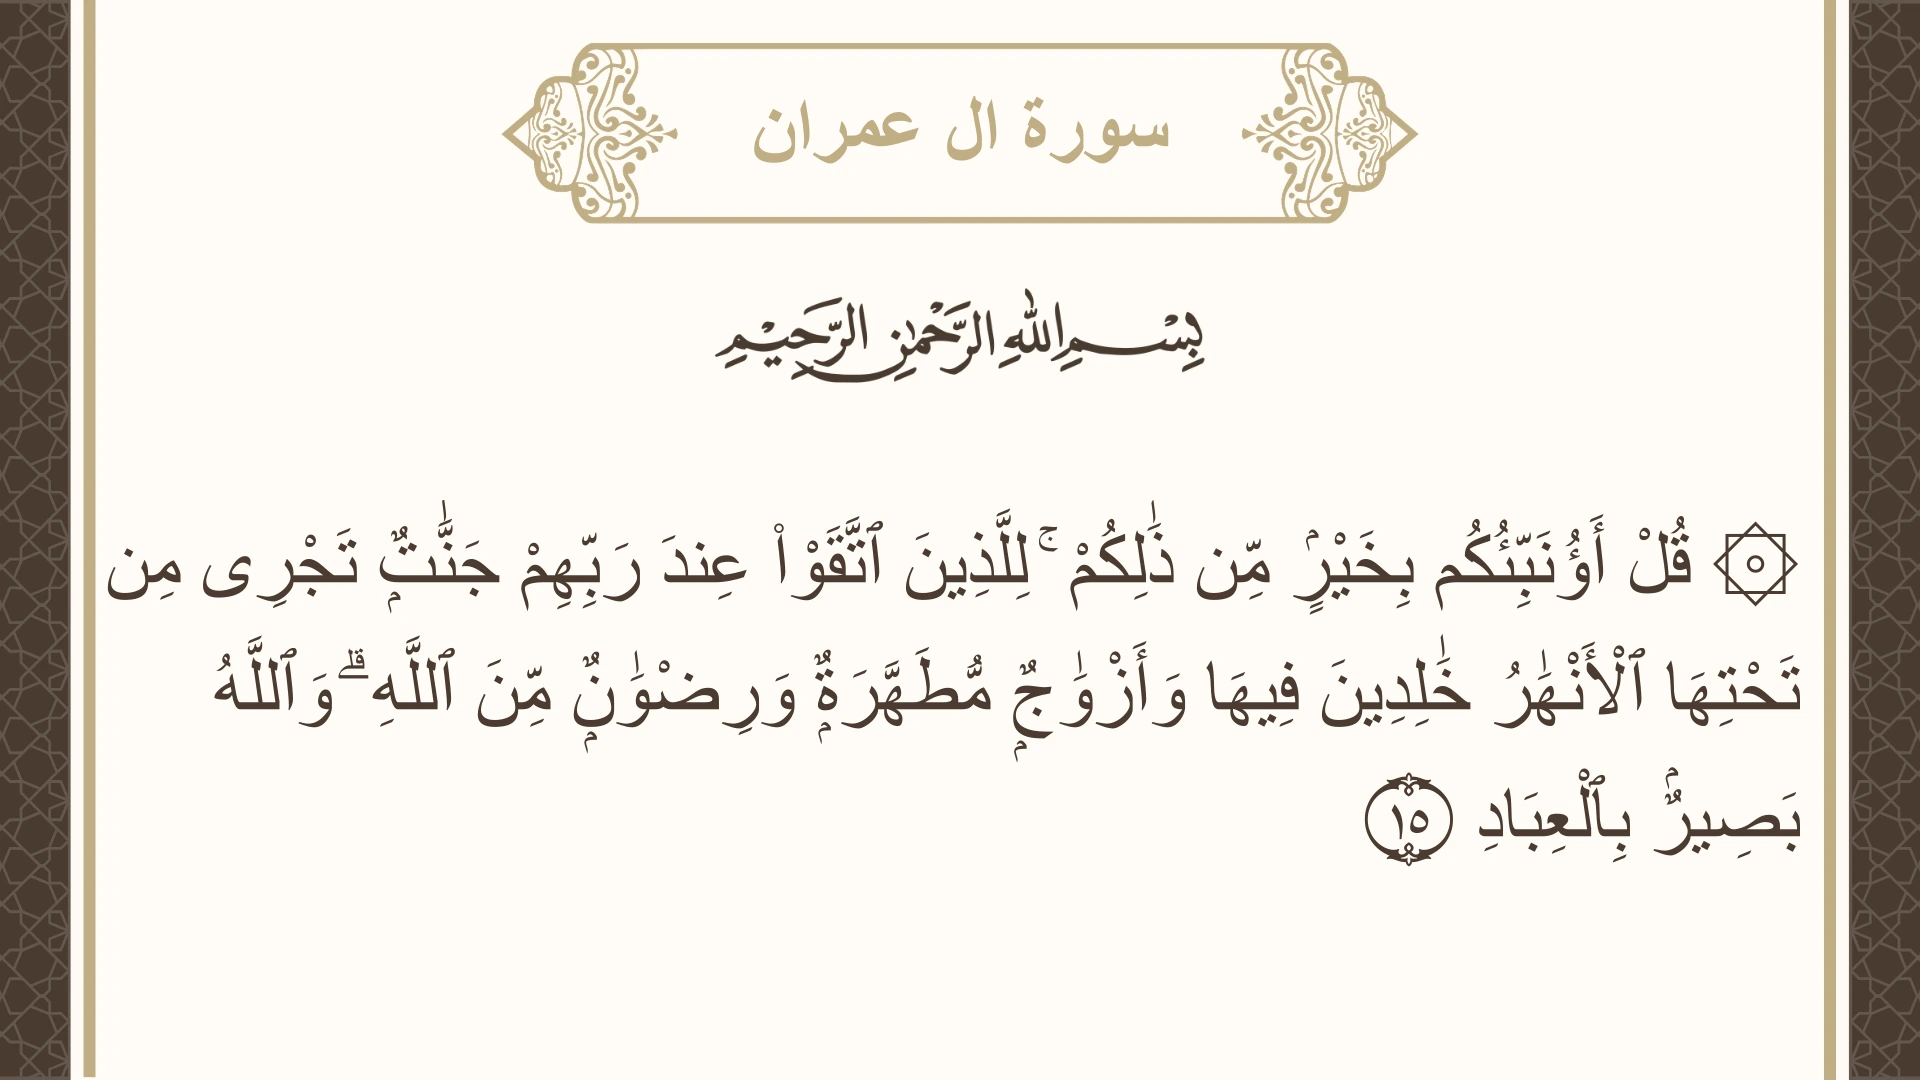 سورة ال عمران
بِسْمِ اللهِ الرَّحْمٰنِ الرَّحِيْمِ
۞ قُلْ أَؤُنَبِّئُكُم بِخَيْرٍۢ مِّن ذَٰلِكُمْ ۚ لِلَّذِينَ ٱتَّقَوْا۟ عِندَ رَبِّهِمْ جَنَّـٰتٌۭ تَجْرِى مِن
تَحْتِهَا ٱلْأَنْهَـٰرُ خَـٰلِدِينَ فِيهَا وَأَزْوَٰجٌۭ مُّطَهَّرَةٌۭ وَرِضْوَٰنٌۭ مِّنَ ٱللَّهِ ۗ وَٱللَّهُ
بَصِيرٌۢ بِٱلْعِبَادِ ١٥